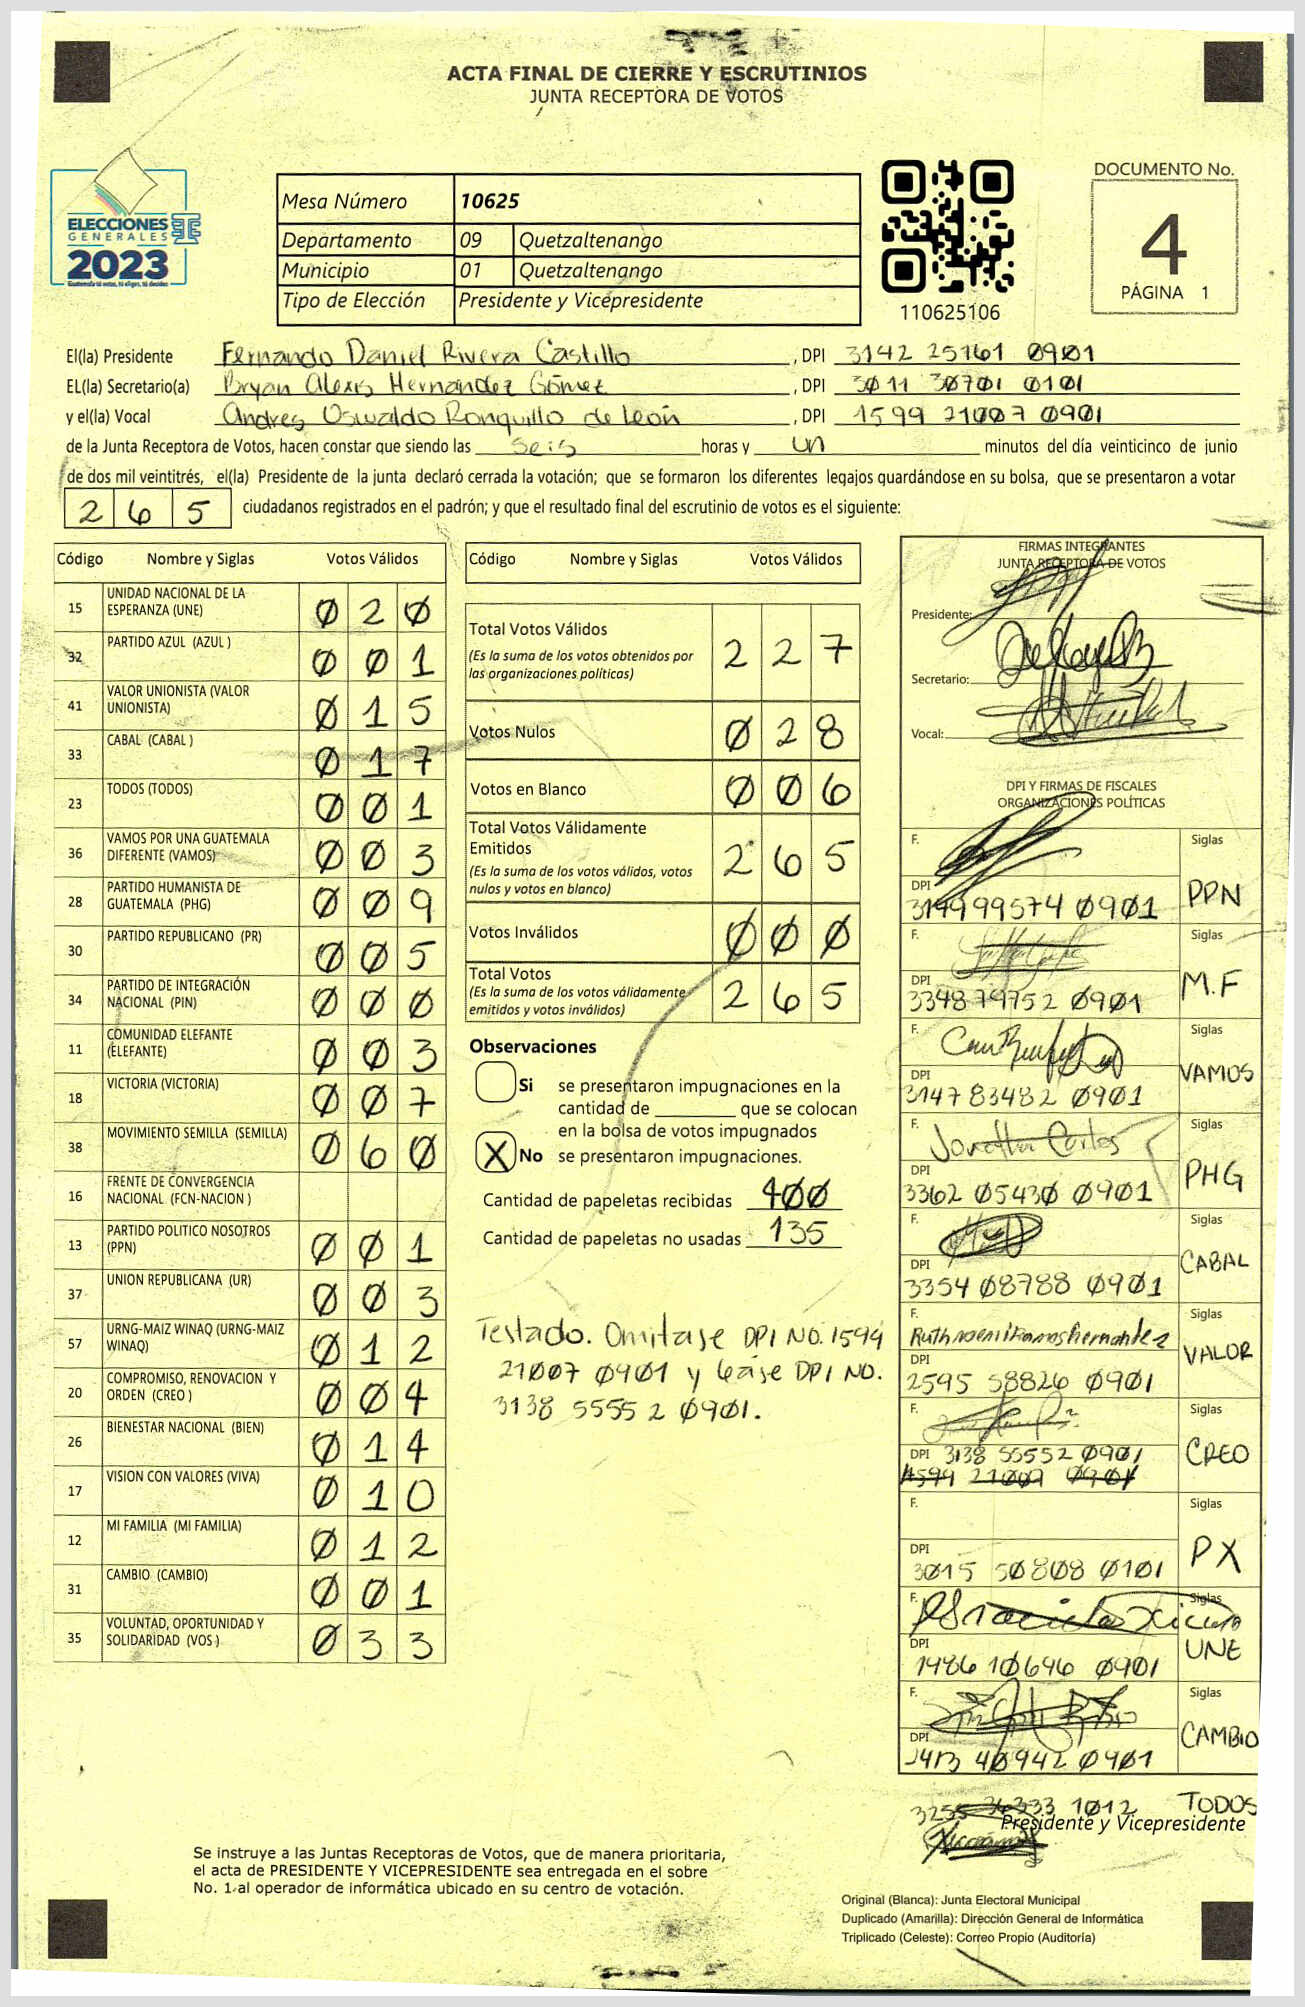 ACTA FINAL DE CIERRE Y ESCRUTINIOS
JUNTA RECEPTORA DE VOTOS
ELECCIONES
GENERALES
2023
Mesa Número 10625
Departamento 09 Quetzaltenango
Municipio 01 Quetzaltenango
Tipo de Elección Presidente y Vicepresidente
110625106
DOCUMENTO No.
4
PÁGINA 1
El(la) Presidente Fernando Daniel Rivera Castillo, DPI 3142 25161 0901
EL(la) Secretario(a) Bryan Alexis Hernández Gómez, DPI 3011 30701 0101
y el(la) Vocal Andres Oswaldo Ronquillo de León, DPI 1599 21007 0901
de la Junta Receptora de Votos, hacen constar que siendo las seis horas y un minutos del día veinticinco de junio
de dos mil veintitrés, el(la) Presidente de la junta declaró cerrada la votación; que se formaron los diferentes legajos guardándose en su bolsa, que se presentaron a votar
265 ciudadanos registrados en el padrón; y que el resultado final del escrutinio de votos es el siguiente:
Código Nombre y Siglas Votos Válidos
15 UNIDAD NACIONAL DE LA ESPERANZA (UNE) 020
32 PARTIDO AZUL (AZUL ) 001
41 VALOR UNIONISTA (VALOR UNIONISTA) 015
33 CABAL (CABAL ) 017
23 TODOS (TODOS) 001
36 VAMOS POR UNA GUATEMALA DIFERENTE (VAMOS) 003
28 PARTIDO HUMANISTA DE GUATEMALA (PHG) 009
30 PARTIDO REPUBLICANO (PR) 005
34 PARTIDO DE INTEGRACIÓN NACIONAL (PIN) 000
11 COMUNIDAD ELEFANTE (ELEFANTE) 003
18 VICTORIA (VICTORIA) 007
38 MOVIMIENTO SEMILLA (SEMILLA) 060
16 FRENTE DE CONVERGENCIA NACIONAL (FCN-NACION )
13 PARTIDO POLITICO NOSOTROS (PPN) 001
37 UNION REPUBLICANA (UR) 003
57 URNG-MAIZ WINAQ (URNG-MAIZ WINAQ) 012
20 COMPROMISO, RENOVACION Y ORDEN (CREO ) 004
26 BIENESTAR NACIONAL (BIEN) 014
17 VISION CON VALORES (VIVA) 010
12 MI FAMILIA (MI FAMILIA) 012
31 CAMBIO (CAMBIO) 001
35 VOLUNTAD, OPORTUNIDAD Y SOLIDARIDAD (VOS ) 033
Código Nombre y Siglas Votos Válidos
Total Votos Válidos 227
(Es la suma de los votos obtenidos por
las organizaciones políticas)
Votos Nulos 028
Votos en Blanco 006
Total Votos Válidamente
Emitidos 265
(Es la suma de los votos válidos, votos
nulos y votos en blanco)
Votos Inválidos 000
Total Votos 265
(Es la suma de los votos válidamente
emitidos y votos inválidos)
Observaciones
Si se presentaron impugnaciones en la
cantidad de ________ que se colocan
en la bolsa de votos impugnados
X No se presentaron impugnaciones.
Cantidad de papeletas recibidas 400
Cantidad de papeletas no usadas 135
Testado. Omitase DPI NO. 1594
21007 0901 y léase DPI NO.
3138 55552 0901.
FIRMAS INTEGRANTES
JUNTA RECEPTORA DE VOTOS
Presidente:
Secretario:
Vocal:
DPI Y FIRMAS DE FISCALES
ORGANIZACIONES POLÍTICAS
F. Siglas
DPI 3149 99574 0901 PPN
F. Siglas
DPI 3348 79752 0901 M.F
F. Siglas
DPI 3147 83482 0901 VAMOS
F. Jonathan Cortes Siglas
DPI 3362 05430 0901 PHG
F. Siglas
DPI 3354 08788 0901 CABAL
F. Siglas
DPI 2595 58826 0901 VALOR
F. Siglas
DPI 3138 55552 0901 CREO
F. Siglas
DPI 3015 50808 0101 PX
F. Siglas
DPI 1486 10646 0901 UNE
F. Siglas
DPI 2413 40942 0901 CAMBIO
1012 TODOS
Presidente y Vicepresidente
Se instruye a las Juntas Receptoras de Votos, que de manera prioritaria,
el acta de PRESIDENTE Y VICEPRESIDENTE sea entregada en el sobre
No. 1 al operador de informática ubicado en su centro de votación.
Original (Blanca): Junta Electoral Municipal
Duplicado (Amarilla): Dirección General de Informática
Triplicado (Celeste): Correo Propio (Auditoría)